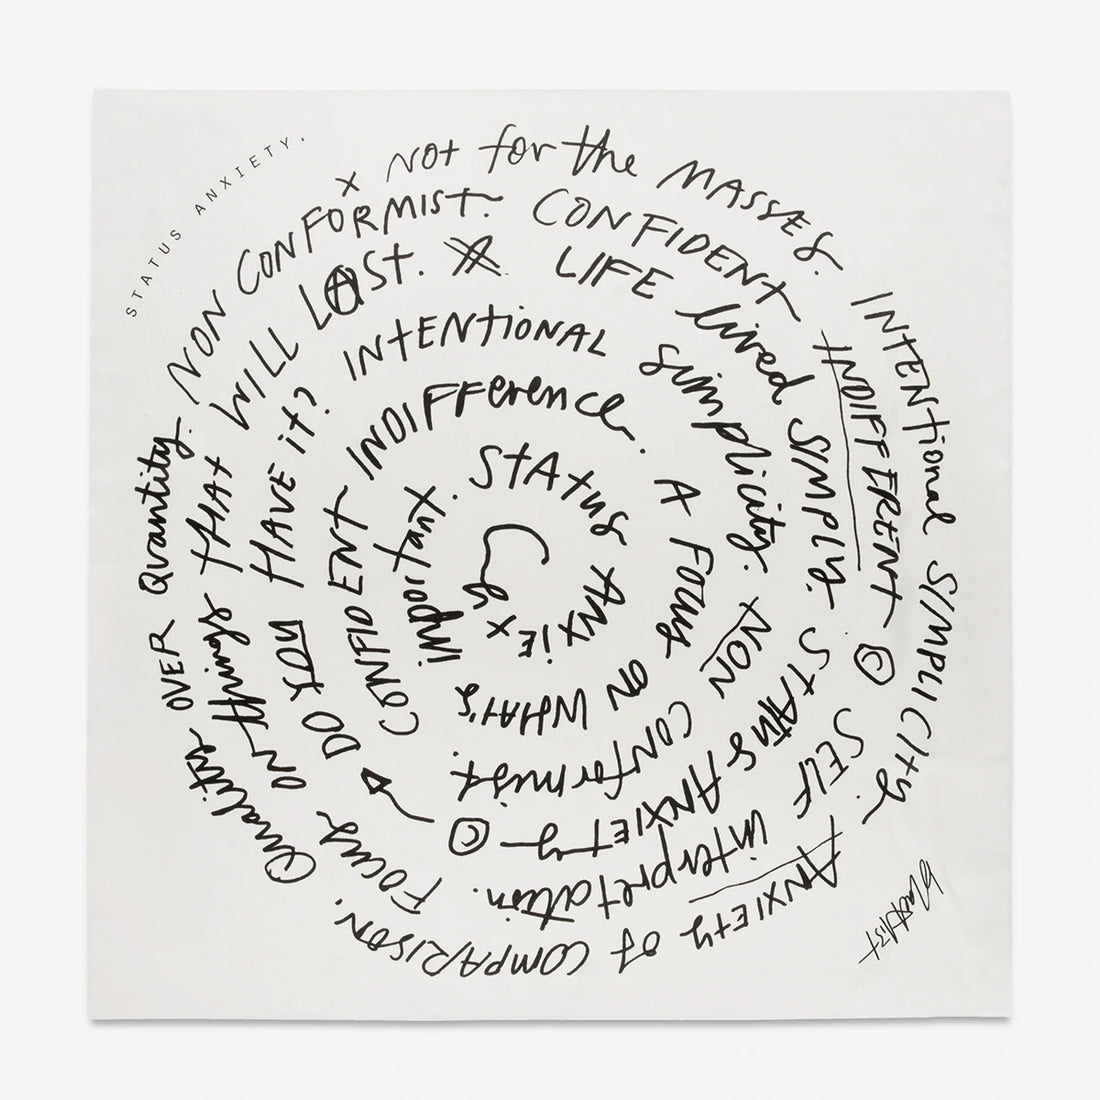 STATUS ANXIETY.
x NOt for the MASSES.
INTENtional SIMPLICITY.
ANXIETY of COMPARISON.
Quality OVER Quantity.
NON CONFORMIST.
CONFIDENT INDIFFERENT ©
SELF interpretation.
FOCUS ON things THAT WILL LAST.
LIFE lived SIMPLY.
STATUS ANXIETY ©
DO YOU HAVE it?
INTENtIONAL simplicity.
NON CONformist.
CONFIDENT INDIFFerence.
A FOCUS ON WHAT'S important.
STATUS ANXIEtY
blackLIST